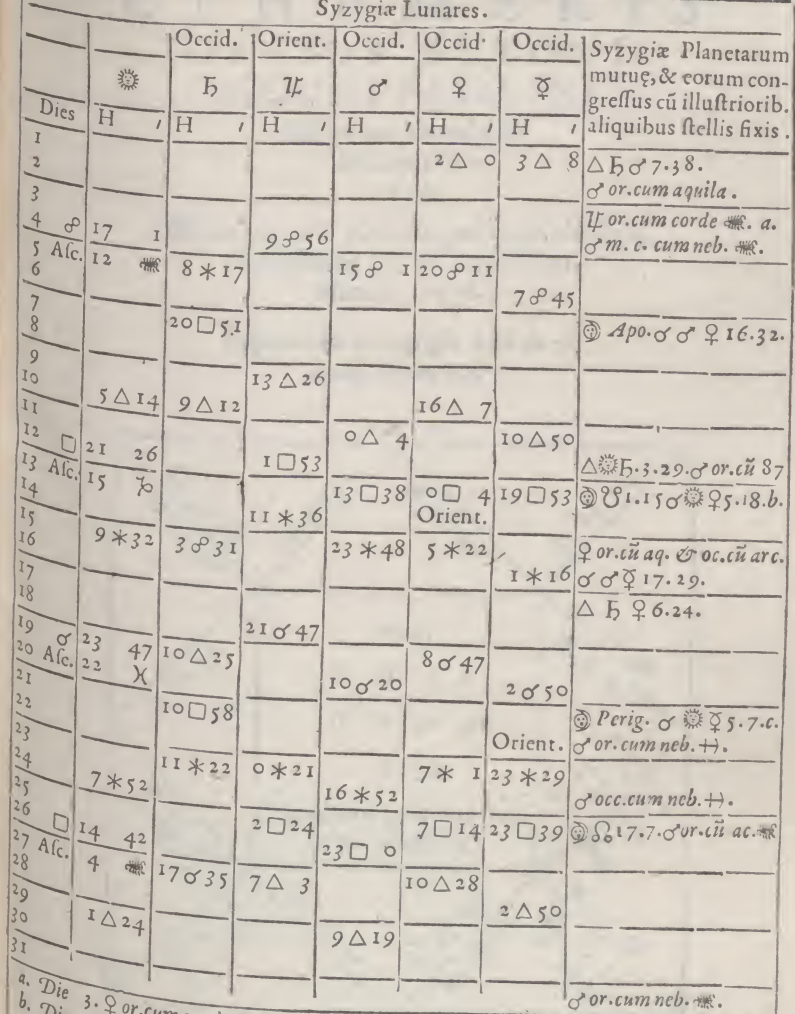 Syzygiæ Lunares.
Occid. Orient. Occid. Occid. Occid. Syzygiæ Planetarum
☼ ♄ ♃ ♂ ♀ ☿ mutuę, & eorum con-
gressus cũ illustriorib.
Dies H ′ H ′ H ′ H ′ H ′ H ′ aliquibus stellis fixis.
1
2 2 △ 0 3 △ 8 △ ♄ ♂ 7.38.
♂ or.cum aquila.
3
4 ☍ 17 1 9 ☍ 56 ♃ or.cum corde ♏. a.
5 Asc. 12 ♏ ♂ m. c. cum neb. ♏.
6 8 ⚹ 17 15 ☍ 1 20 ☍ 11
7 7 ☍ 45
8 20 □ 51 ☽ Apo. ☌ ♂ ♀ 16.32.
9
10 5 △ 14 13 △ 26
11 9 △ 12 16 △ 7
12 □ 21 26 0 △ 4 10 △ 50
13 Asc. 15 ♑ 1 □ 53 △ ☼ ♄. 3.29. ♂ or.cũ 87
14 13 □ 38 0 □ 4 19 □ 53 ☽ ☋ 1.15 ☌ ☼ ♀ 5.18.b.
15 11 ⚹ 36 Orient.
16 9 ⚹ 32 3 ☍ 31 23 ⚹ 48 5 ⚹ 22 ♀ or.cũ aq. & oc.cũ arc.
17 1 ⚹ 16 ☌ ♂ ☿ 17.29.
18 △ ♄ ♀ 6.24.
19 ☌ 23 47 21 ☌ 47
20 Asc. 22 ♓ 10 △ 25 8 ☌ 47
21 10 ☌ 20 2 ☌ 50
22 10 □ 58 ☽ Perig. ☌ ☼ ☿ 5.7.c.
23 Orient. ♂ or.cum neb. ♐.
24 11 ⚹ 22 0 ⚹ 21 7 ⚹ 1 23 ⚹ 29
25 7 ⚹ 52 16 ⚹ 52 ♂ occ.cum neb. ♐.
26 □ 14 42 2 □ 24 7 □ 14 23 □ 39 ☽ ☊ 17.7. ♂ or.cũ ac. ♏
27 Asc. 4 ♏ 23 □ 0
28 17 ☌ 35 7 △ 3 10 △ 28
29 2 △ 50
30 1 △ 24 9 △ 19
31
♂ or.cum neb. ♏.
a. Die 3. ♀ or.cum
b.